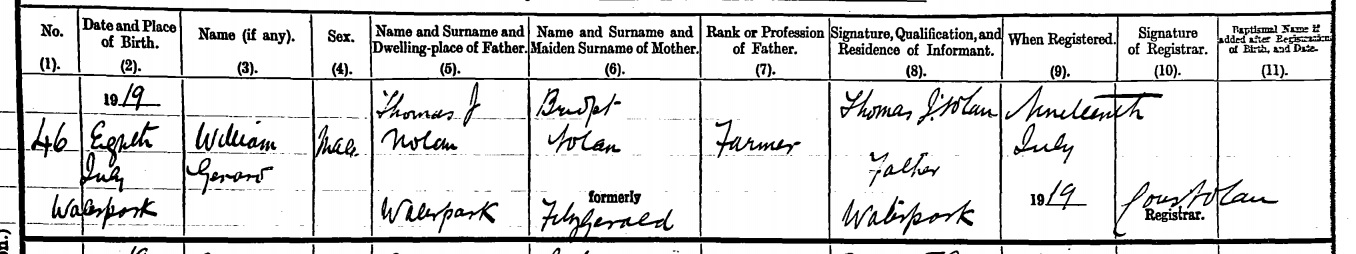 No.
(1).
Date and Place
of Birth.
(2).
Name (if any).
(3).
Sex.
(4).
Name and Surname and
Dwelling-place of Father.
(5).
Name and Surname and
Maiden Surname of Mother.
(6).
Rank or Profession
of Father.
(7).
Signature, Qualification, and
Residence of Informant.
(8).
When Registered.
(9).
Signature
of Registrar.
(10).
Baptismal Name if
added after Registration
of Birth, and Date.
(11).
46
1919
Eighth
July
Waterpark
William
Gerard
Male
Thomas J
Nolan
Waterpark
Nolan
formerly
Fitzgerald
Farmer
Thomas J Nolan
Father
Waterpark
Nineteenth
July
1919
Nolan
Registrar.
on.)